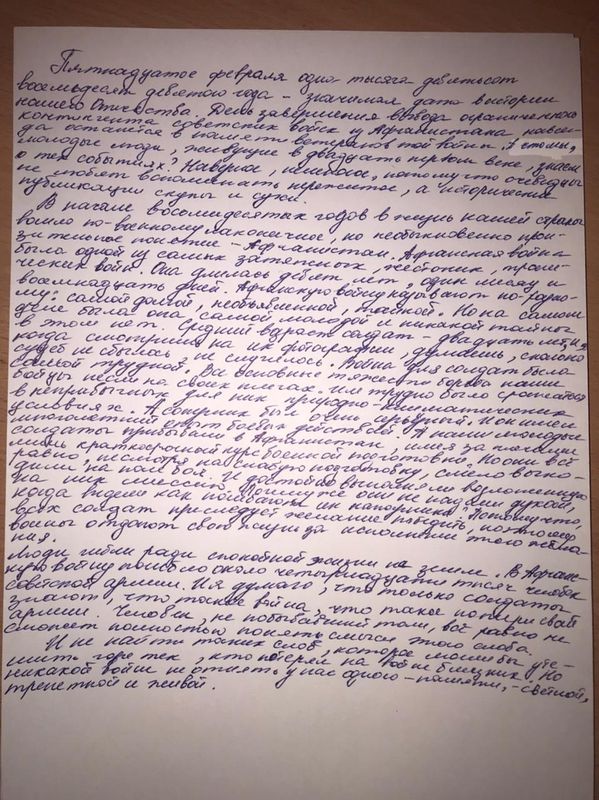 Пятнадцатое февраля одна тысяча девятьсот
восемьдесят девятого года - значимая дата в истории
нашего Отечества. День завершения вывода ограниченного
контингента советских войск из Афганистана навсег-
да останется в памяти ветеранов той войны. А что мы,
молодые люди, живущие в двадцать первом веке, знаем
о тех событиях? Наверное, немногое, потому что очевидцы
не любят вспоминать пережитое, а исторические
публикации скупы и сухи.
В начале восьмидесятых годов в жизнь нашей страны
вошло по-военному лаконичное, но необыкновенно прон-
зительное понятие - Афганистан. Афганская война
была одной из самых затяжных, жестоких, траги-
ческих войн. Она длилась девять лет, один месяц и
восемнадцать дней. Афганскую войну называют по-разно-
му: самой долгой, необъявленной, тайной. Но на самом
деле была она самой молодой и никакой тайны
в этом нет. Средний возраст солдат - двадцать лет, и
когда смотришь на их фотографии, думаешь, сколько
не сбылось, не случилось. Война для солдат была
самой трудной. Все основные тяжести борьбы наши
бойцы несли на своих плечах. Им трудно было сражаться
в непривычных для них природно-климатических
условиях. А соперник был очень серьёзный. Он имел
многолетний опыт боевых действий. А наши молодые
солдаты прибывали в Афганистан, имея за плечами
лишь краткосрочный курс военной подготовки. Но они всё
равно, несмотря на слабую подготовку, смело выхо-
дили на поле боя и достойно выполняли возложенную
на них миссию. Почему же они не падали духом,
когда видели как погибают их напарники? Потому что,
всех солдат преследует желание победить, поэтому
воины отдают свою жизнь за исполнение этого жела-
ния.
Люди гибли ради спокойной жизни на земле. В Афган-
скую войну погибло около четырнадцати тысяч человек
советской армии. И я думаю, что только солдаты
знают, что такое война, что такое потери своей
армии. Человек, не побывавший там, всё равно не
сможет полностью понять смысл этого слова.
И не найти таких слов, которое могли бы уте-
шить горе тех, кто потерял на войне близких. Но
никакой войне не отнять у нас одного - памяти, - светлой,
трепетной и живой.